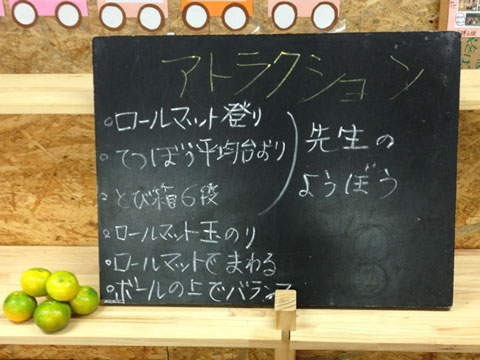 アトラクション
○ロールマット登り
○てつぼう平均台より
○とび箱6段
先生の
ようぼう
○ロールマット玉のり
○ロールマットでまわる
○ボールの上でバランス